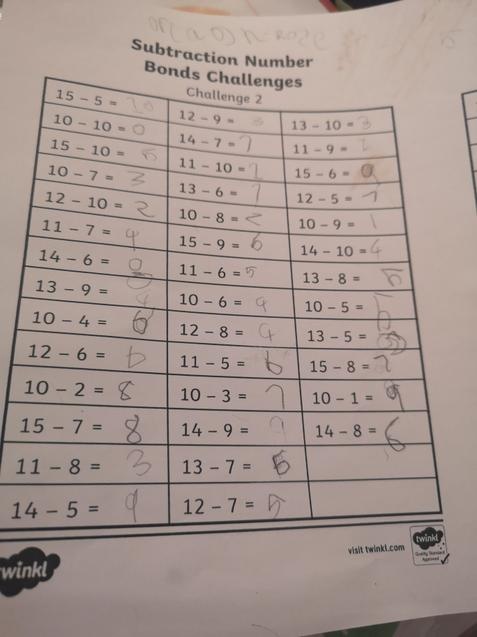 Subtraction Number
Bonds Challenges
Challenge 2
15 – 5 = 10 12 – 9 = 3 13 – 10 = 3
10 – 10 = 0 14 – 7 = 7 11 – 9 = 2
15 – 10 = 5 11 – 10 = 15 – 6 = 9
10 – 7 = 3 13 – 6 = 7 12 – 5 = 7
12 – 10 = 2 10 – 8 = 2 10 – 9 = 1
11 – 7 = 4 15 – 9 = 6 14 – 10 = 4
14 – 6 = 11 – 6 = 5 13 – 8 = 5
13 – 9 = 4 10 – 6 = 4 10 – 5 = 5
10 – 4 = 6 12 – 8 = 4 13 – 5 =
12 – 6 = 6 11 – 5 = 6 15 – 8 = 7
10 – 2 = 8 10 – 3 = 7 10 – 1 = 9
15 – 7 = 8 14 – 9 = 14 – 8 = 6
11 – 8 = 3 13 – 7 = 6
14 – 5 = 9 12 – 7 = 5
twinkl
visit twinkl.com
twinkl
Quality Standard
Approved